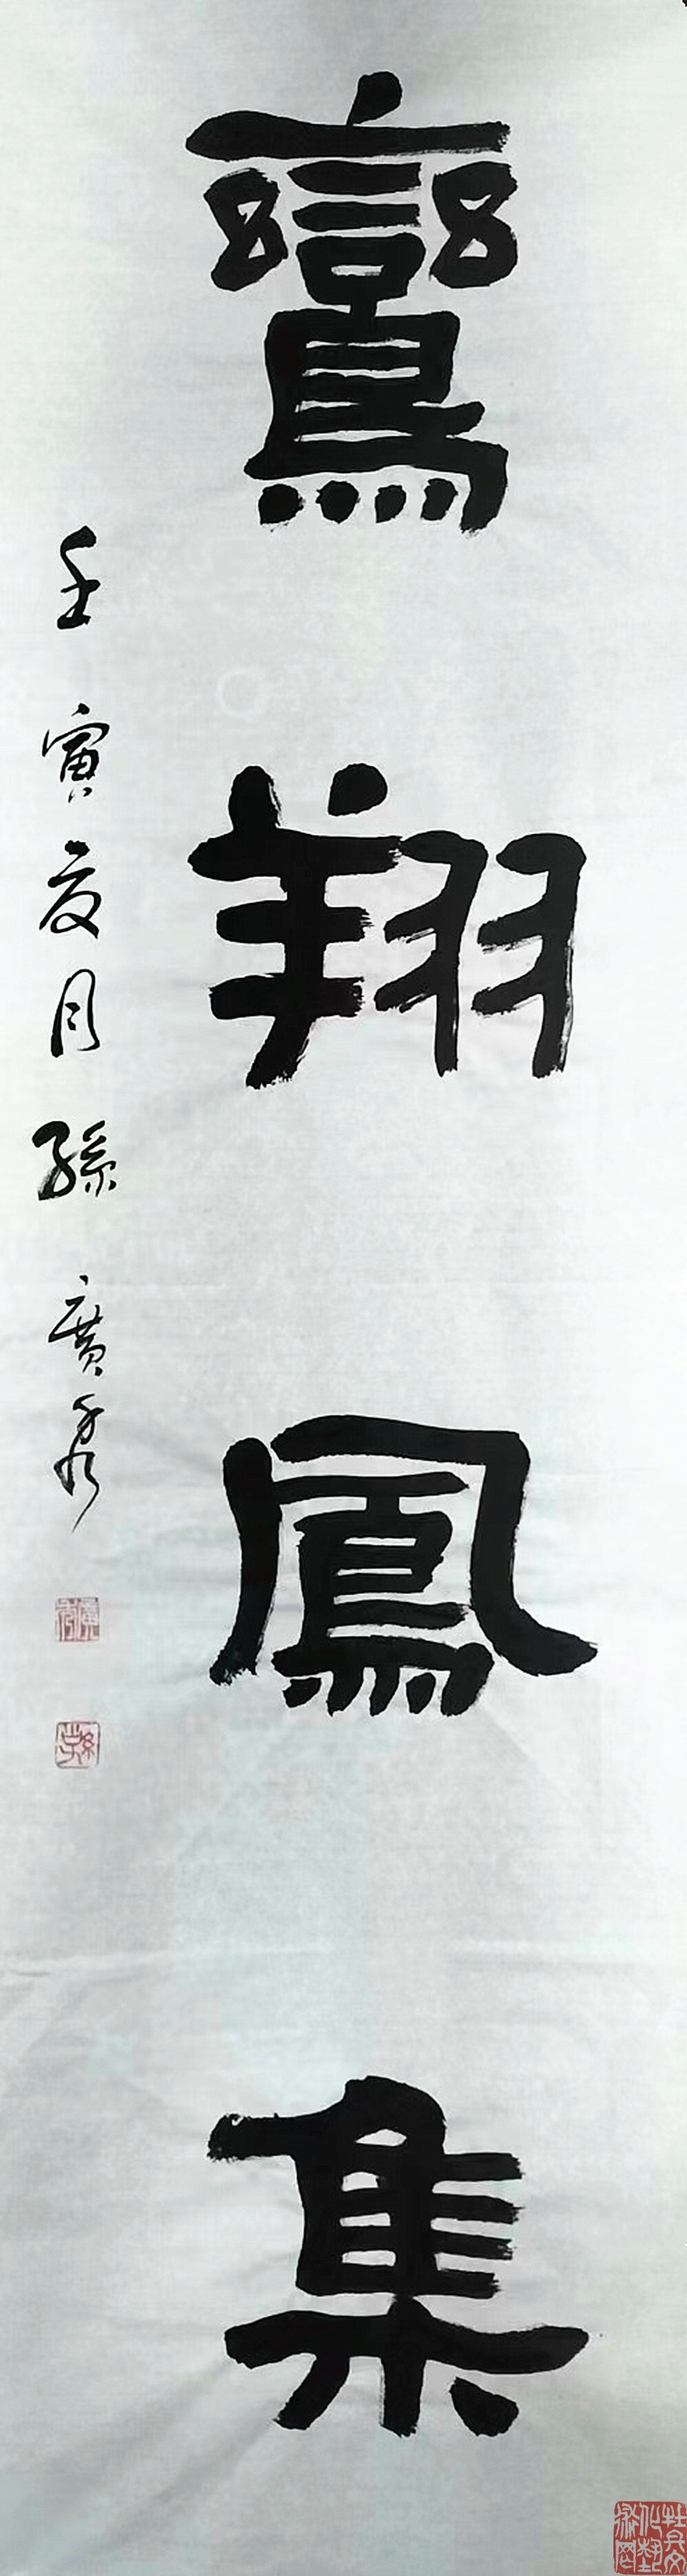 鸞翔鳳集
壬寅夏月孫廣秀